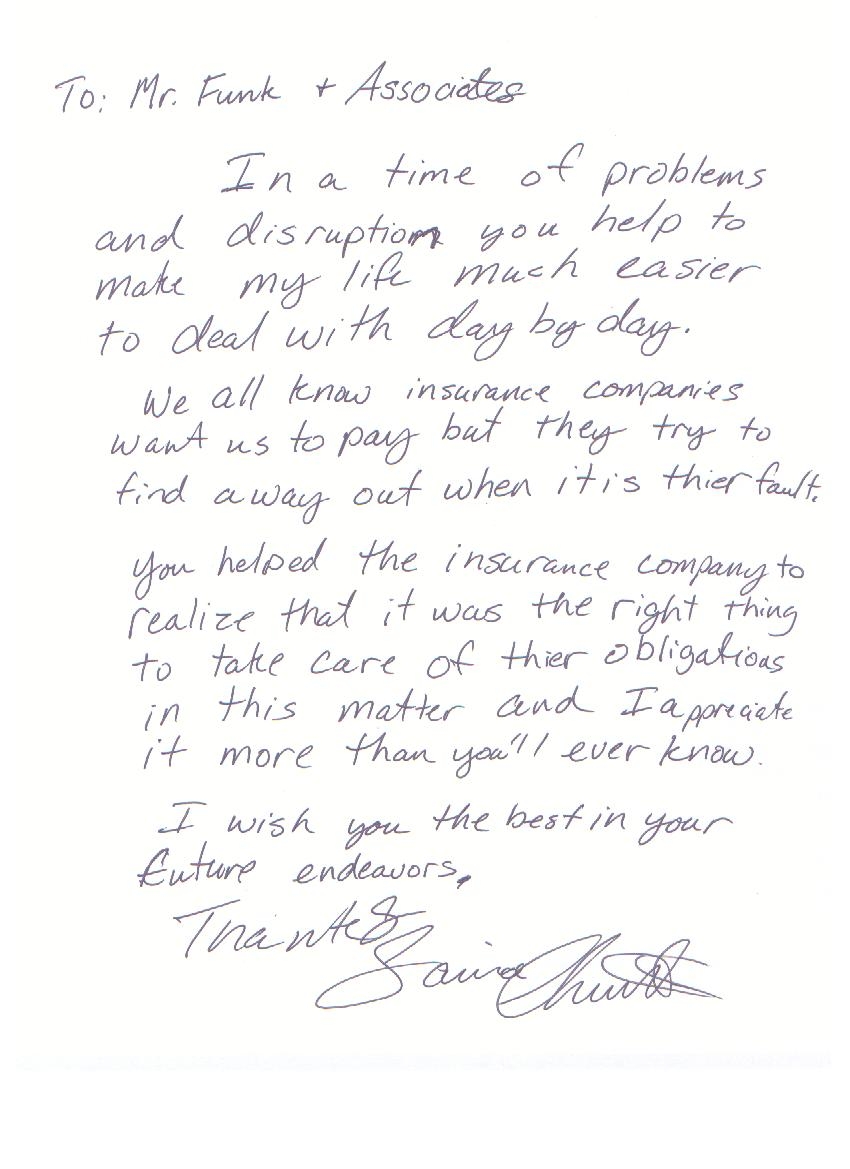 To: Mr. Funk + Associates
In a time of problems
and disruption you help to
make my life much easier
to deal with day by day.
We all know insurance companies
want us to pay but they try to
find a way out when it is thier fault.
You helped the insurance company to
realize that it was the right thing
to take care of thier obligations
in this matter and I appreciate
it more than you'll ever know.
I wish you the best in your
future endeavors,
Thanks